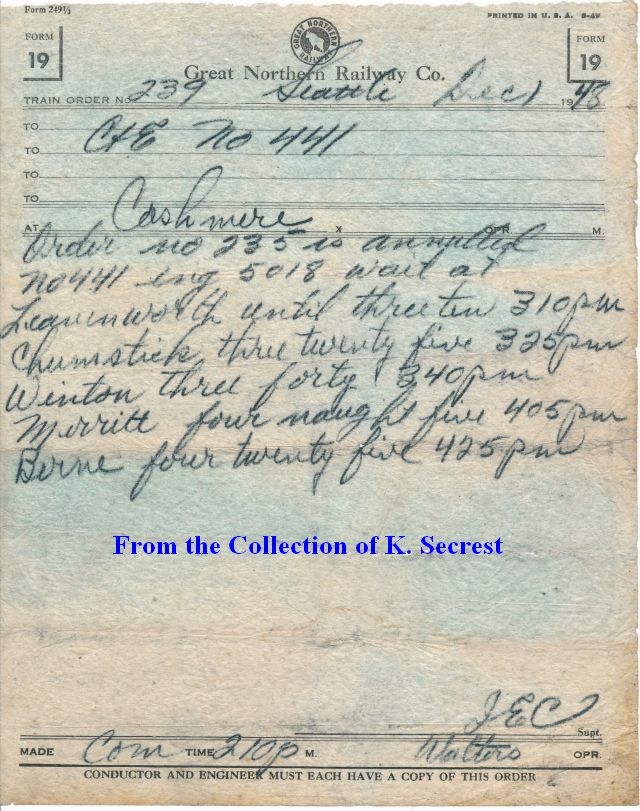 Form 249½
PRINTED IN U. S. A. 8-47
FORM 19
GREAT NORTHERN RAILWAY
FORM 19
Great Northern Railway Co.
TRAIN ORDER No. 239 Seattle Dec 1 1948
TO C&E No 441
TO
TO
TO
AT Cashmere X OPR. M.
Order no 235 is annulled
No 441 eng 5018 wait at
Leavenworth until three ten 310pm
Chumstick three twenty five 325pm
Winton three forty 340pm
Merritt four naught five 405pm
Berne four twenty five 425pm
From the Collection of K. Secrest
JEC
Supt.
MADE Com TIME 210p M. Walters OPR.
CONDUCTOR AND ENGINEER MUST EACH HAVE A COPY OF THIS ORDER